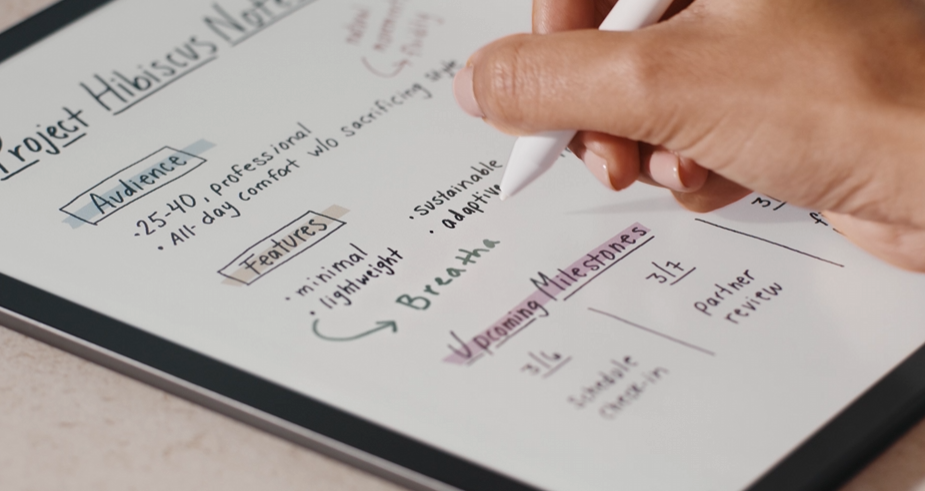 Project Hibiscus Notes
Audience
·25-40, professional
·All-day comfort w/o sacrificing style
Features
·minimal
·lightweight
·sustainable
·adaptive
Breatha
Upcoming Milestones
3/6
Schedule
check-in
3/7
partner
review